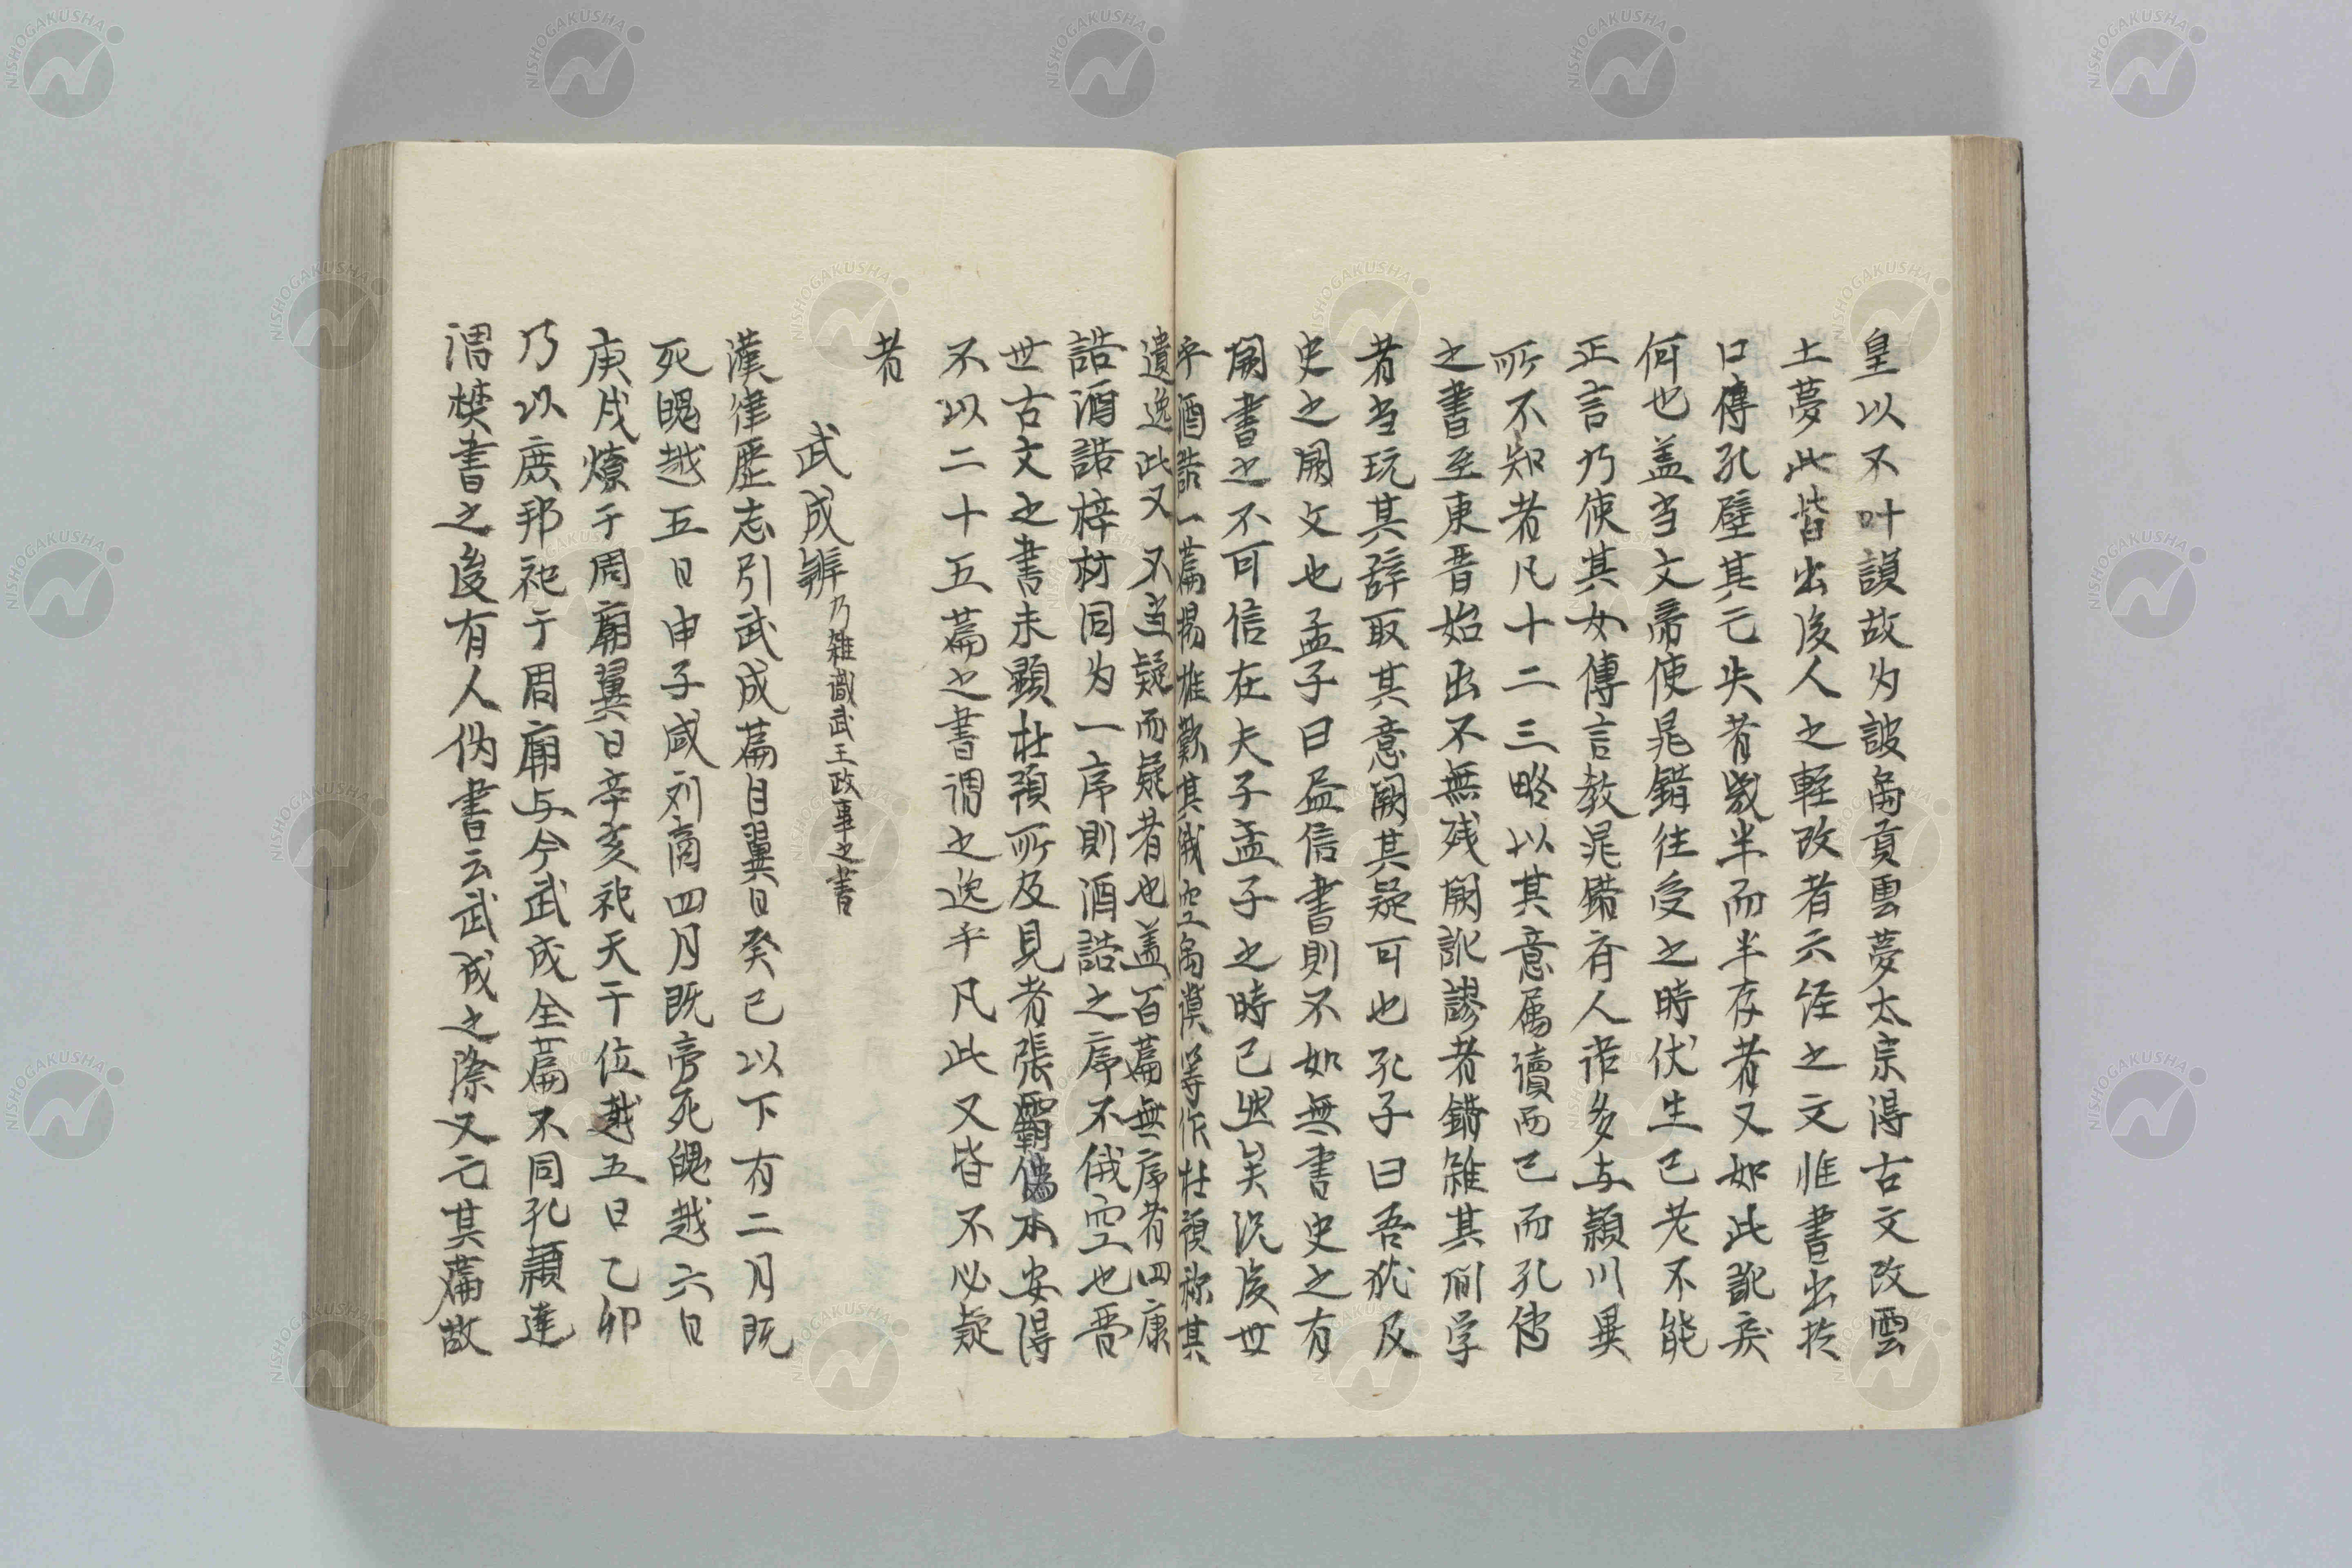 皇以不叶韻故为詖禹貢雲夢太宗得古文改雲
土夢此皆出後人之軽改者六经之文惟書出扵
口傳孔壁其亡失者㡬半而半存者又如此訛矣
何也盖当文帝使晁錯徃受之時伏生已老不能
正言乃使其女傳言教晁錯斉人语多与潁川異
所不知者凡十二三略以其意属讀而已而孔傳
之書至東晋始出不無残闕訛謬者錯雑其间学
者当玩其辞取其意闕其疑可也孔子曰吾犹及
史之闕文也孟子曰尽信書則不如無書史之有
闕書之不可信在夫子孟子之時已然矣况後世
乎酒誥一篇揚雄歎其俄空禹謨等作杜預称其
遺逸此又不当疑而疑者也盖百篇無序者四康
誥酒誥梓材同为一序則酒誥之序不俄空也晋
世古文之書未顕杜預所及見者張霸偽本安得
不以二十五篇之書謂之逸乎凡此又皆不必疑
者
武成辨乃雑識武王政事之書
漢律歷志引武成篇自翼日癸巳以下有二月既
死魄越五日甲子咸刘商四月既旁死魄越六日
庚戌燎于周廟翼日辛亥祀天于位越五日乙卯
乃以庶邦祀于周廟与今武成全篇不同孔穎達
谓焚書之後有人伪書云武成之際又亡其篇故